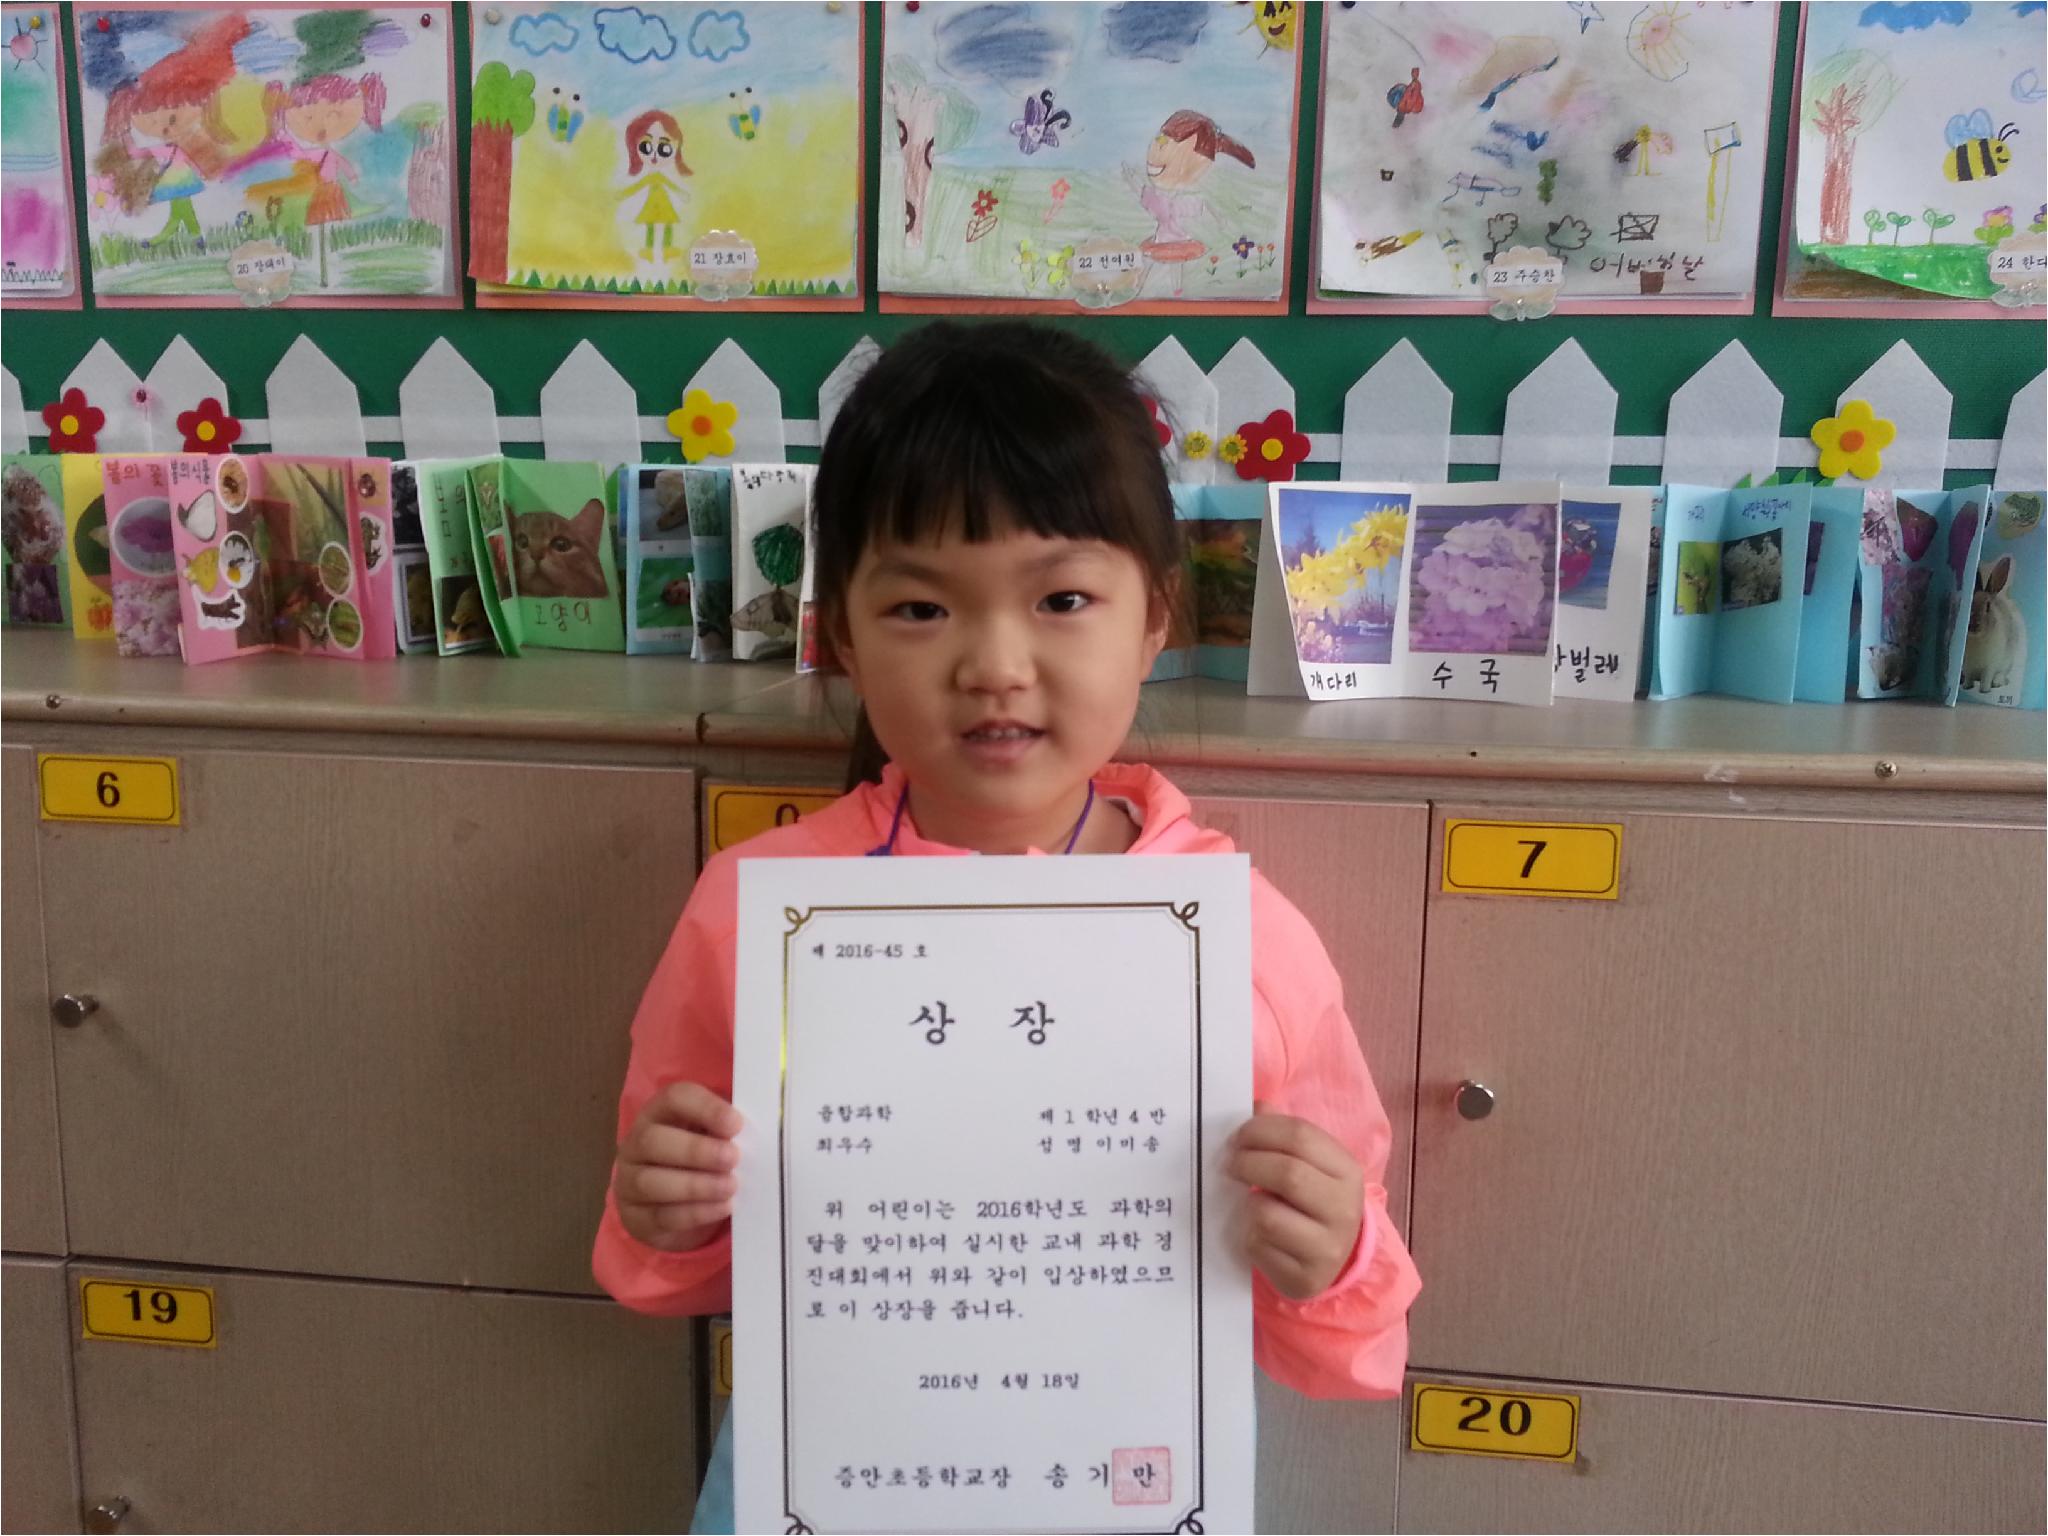 20 장태이
21 장효이
22 전여원
23 주승찬
어버이날
24 한다
봄의 꽃
봄의 식물
고양이
개다리
수국
벌레
토끼
6
7
19
20
제 2016-45 호
상 장
융합과학 제 1 학년 4 반
최우수 성 명 이미송
위 어린이는 2016학년도 과학의
달을 맞이하여 실시한 교내 과학 경
진대회에서 위와 같이 입상하였으므
로 이 상장을 줍니다.
2016년 4월 18일
증안초등학교장 송기만